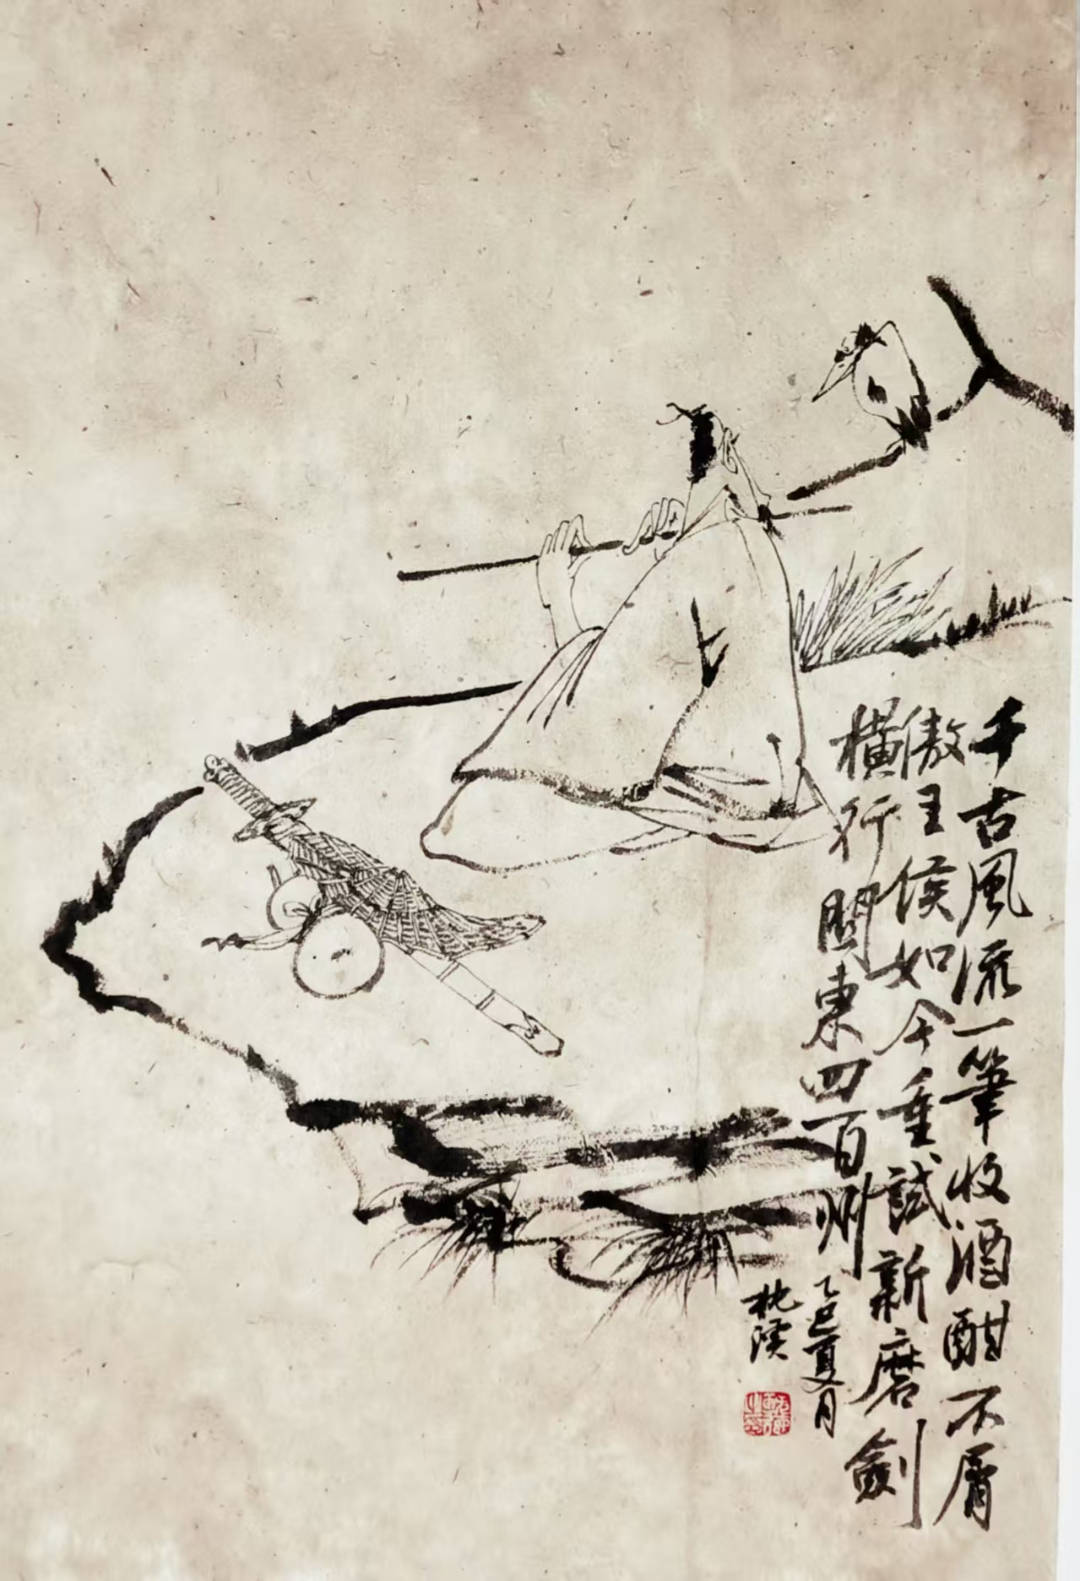 千古風流一筆收酒酣不屑
傲王侯如今重試新磨劍
橫行關東四百州
乙巳夏月
枕溪